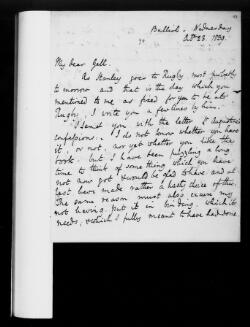 Balliol. Wednesday
Oct 23. 1839.
My dear Gell.
As Stanley goes to Rugby most probably
to morrow and that is the day which you
mentioned to me as fixed for you to be at
Rugby, I write you a few lines by him.
I send you with the letter St Augustine's
confessions. I do not know whether you have
it, or not, nor yet whether you like the
book. but I have been puzzling a long
time to think of some thing which you have
not now got & would be glad to have. and at
last have made rather a hasty choice of this.
The same reason must also excuse my
not having put it in binding, which it
needs, & which I fully meant to have had done.